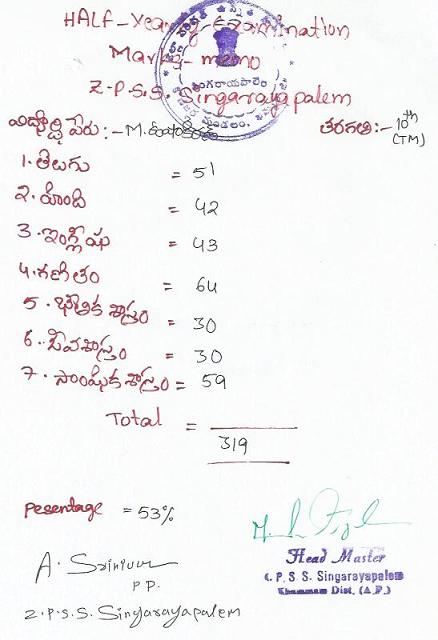 HALF-Yearly-Examination
Marks-memo
Z-P-S.S. Singarayapalem
విద్యార్థి పేరు:- M.
తరగతి:- 10th
(TM)
1. తెలుగు = 51
2. హింది = 42
3. ఇంగ్లీషు = 43
4. గణితం = 64
5. భౌతిక శాస్త్రం = 30
6. జీవశాస్త్రం = 30
7. సాంఘిక శాస్త్రం = 59
Total =
319
Pesentage = 53%
A. Srinivas
P.P.
Z.P.S.S. Singarayapalem
Head Master
Z. P. S. S. Singarayapalem
Khammam Dist. (A.P.)